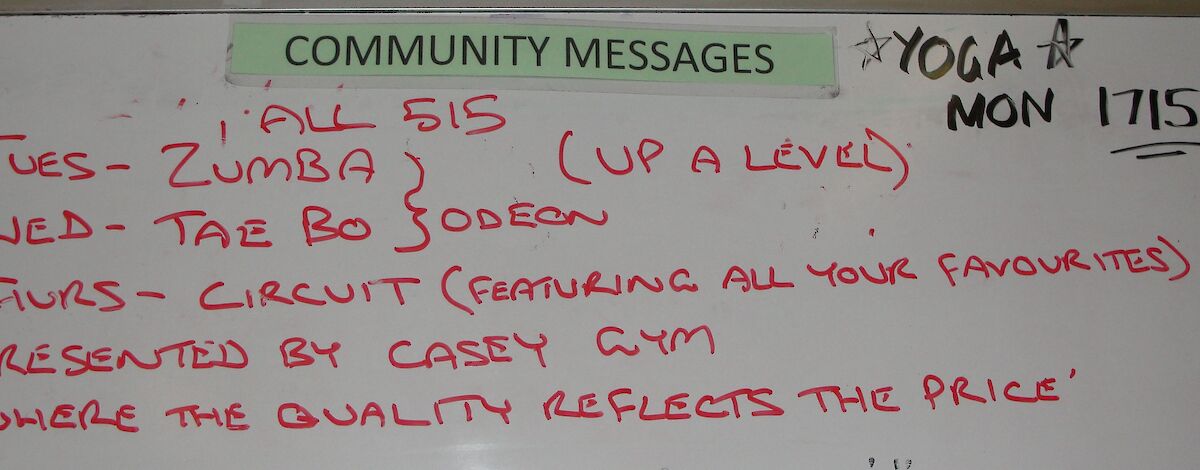 COMMUNITY MESSAGES
☆YOGA☆
MON 1715
ALL 515
TUES - ZUMBA } (UP A LEVEL)
WED - TAE BO } ODEON
THURS - CIRCUIT (FEATURING ALL YOUR FAVOURITES)
PRESENTED BY CASEY GYM
WHERE THE QUALITY REFLECTS THE PRICE'